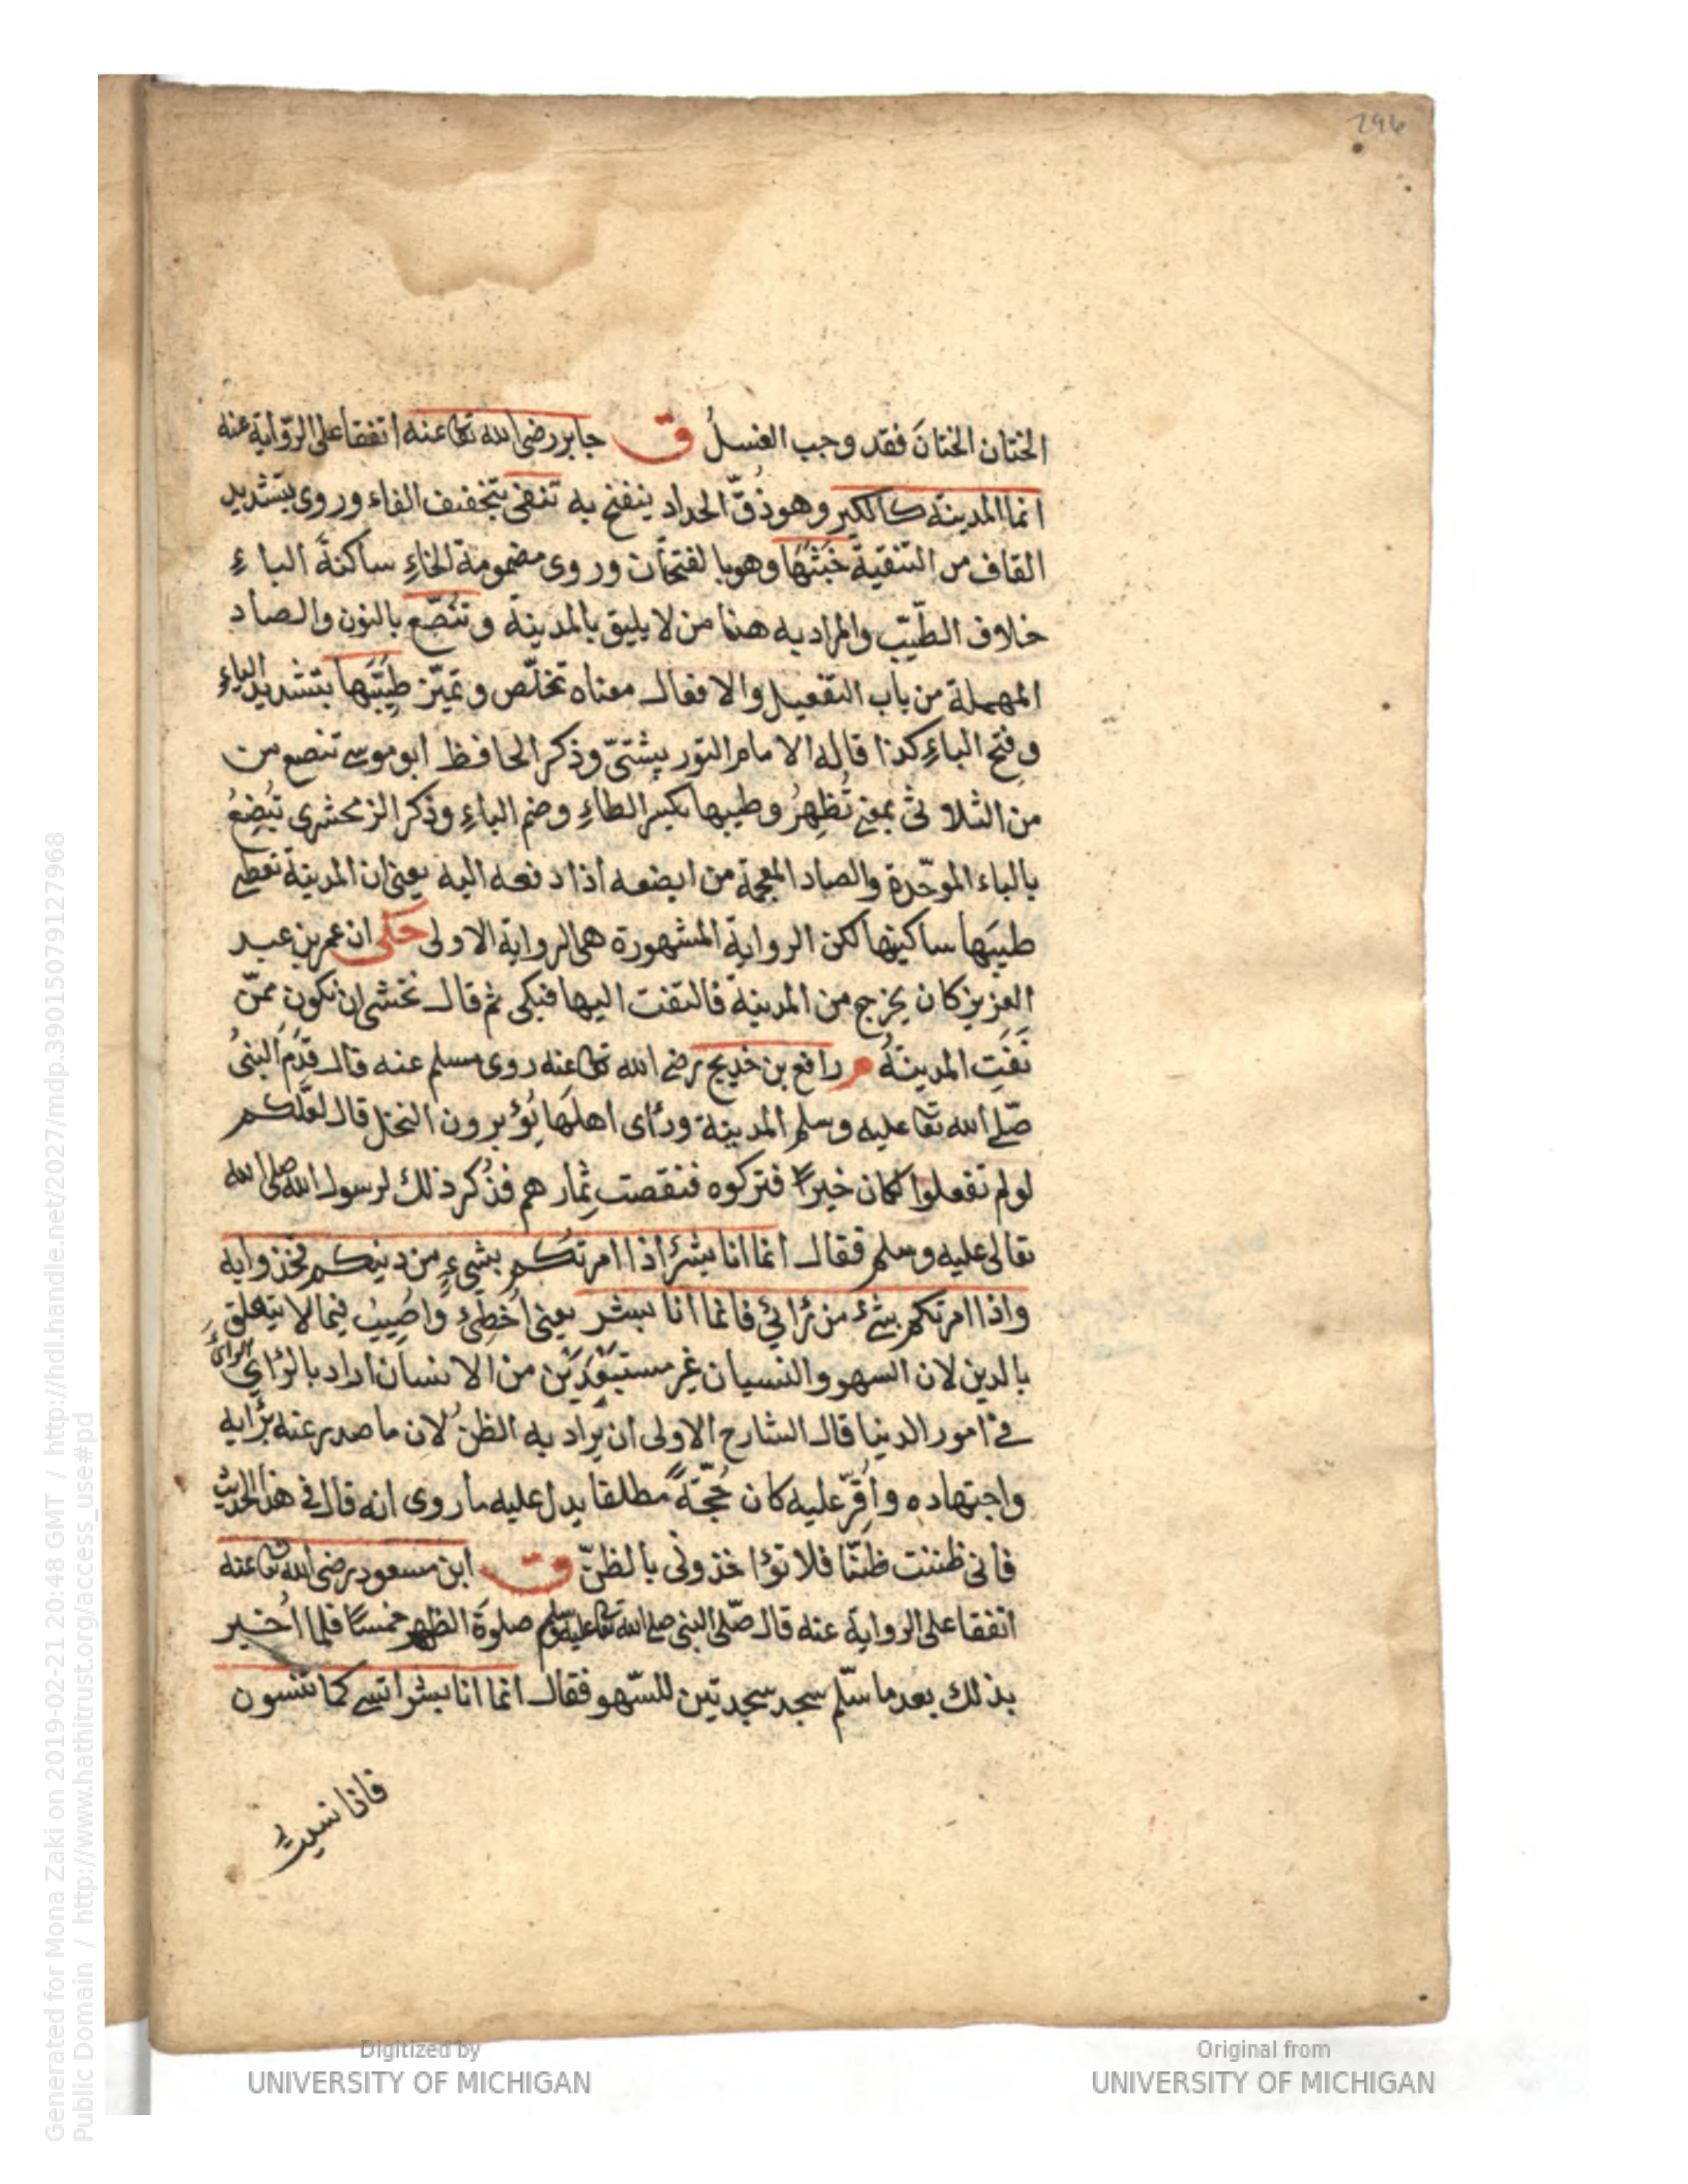 296
الختان الختانَ فقد وجب الغسلُ ق جابر رضى الله تعا عنه اتفقا على الرّواية عنه
انما المدينة كالكير وهو ذُقّ الحداد ينفخ به تنفى بتخفيف الفاء وروى بتشديد
القاف من التنقية خَبَثَهَا وهو بالفتحات وروى مضمومة الخاءِ ساكنةَ الباءِ
خلاف الطيّب والمراد به هنا من لا يليق بالمدينة وتنصّع بالنون والصاد
المهملة من باب التفعيل والافعال معناه تخلّص وتميّز طيِّبَها بتشديد الياءِ
وفتح الباءِ كذا قاله الامام التورپشتىّ وذكر الحافظ ابو موسى تنصع من
من الثلاثى بمعنى تُظهِرُ وطيبها بكسر الطاءِ وضم الباءِ وذكر الزمخشرى تبُضِعُ
بالباء الموحّدة والضاد المعجمة من ابضعه اذا دفعه اليه يعنى ان المدينة تعطى
طيبَها ساكنيها لكن الرواية المشهورة هى الرواية الاولى حكى ان عمر بن عبد
العزيز كان يخرج من المدينة فالتفت اليها فبكى ثم قال نخشى ان نكون ممّن
نَفَتِ المدينةُ م رافع بن خديج رضى الله تعا عنه روى مسلم عنه قال قَدِمَ النبىُ
صلّى الله تعا عليه وسلم المدينة ورأى اهلَها يُؤبرون النخل قال لعَلّكم
لو لم تفعلوا كان خيرًا فتركوه فنقصت ثِمارهم فذُكر ذلك لرسول الله صلى الله
تعالى عليه وسلم فقال انما انا بشرٌ اذا امرتكُم بشىءٍ من دينكم فخذوا به
واذا امرتكم بشئ من رائي فانما انا بشر يعنى اُخطِئ واُصِيبُ فيما لا يتعلق
بالدين لان السهو والنسيان غير مستبعَدَيْن من الانسان اراد بالرأي الرأىَ
فى امور الدنيا قال الشارح الاولى ان يراد به الظنّ لان ما صدر عنه برأيه
واجتهاده واُقِرّ عليه كان حُجّةً مطلقا يدل عليه ما روى انه قال فى هذا الحديث
فانى ظننت ظنّا فلا تؤاخذونى بالظنّ ق ابن مسعود رضى الله تعا عنه
اتفقا على الرواية عنه قال صلّى النبى صلى الله تعا عليه وسلم صلوةَ الظهر خمسًا فلما اُخبر
بذلك بعد ما سلّم سجد سجدتين للسّهو فقال انما انا بشر انسى كما تنسون
فاذا نسيت
Digitized by
UNIVERSITY OF MICHIGAN
Original from
UNIVERSITY OF MICHIGAN
Generated for Mona Zaki on 2019-02-21 20:48 GMT / http://hdl.handle.net/2027/mdp.39015079127968
Public Domain / http://www.hathitrust.org/access_use#pd